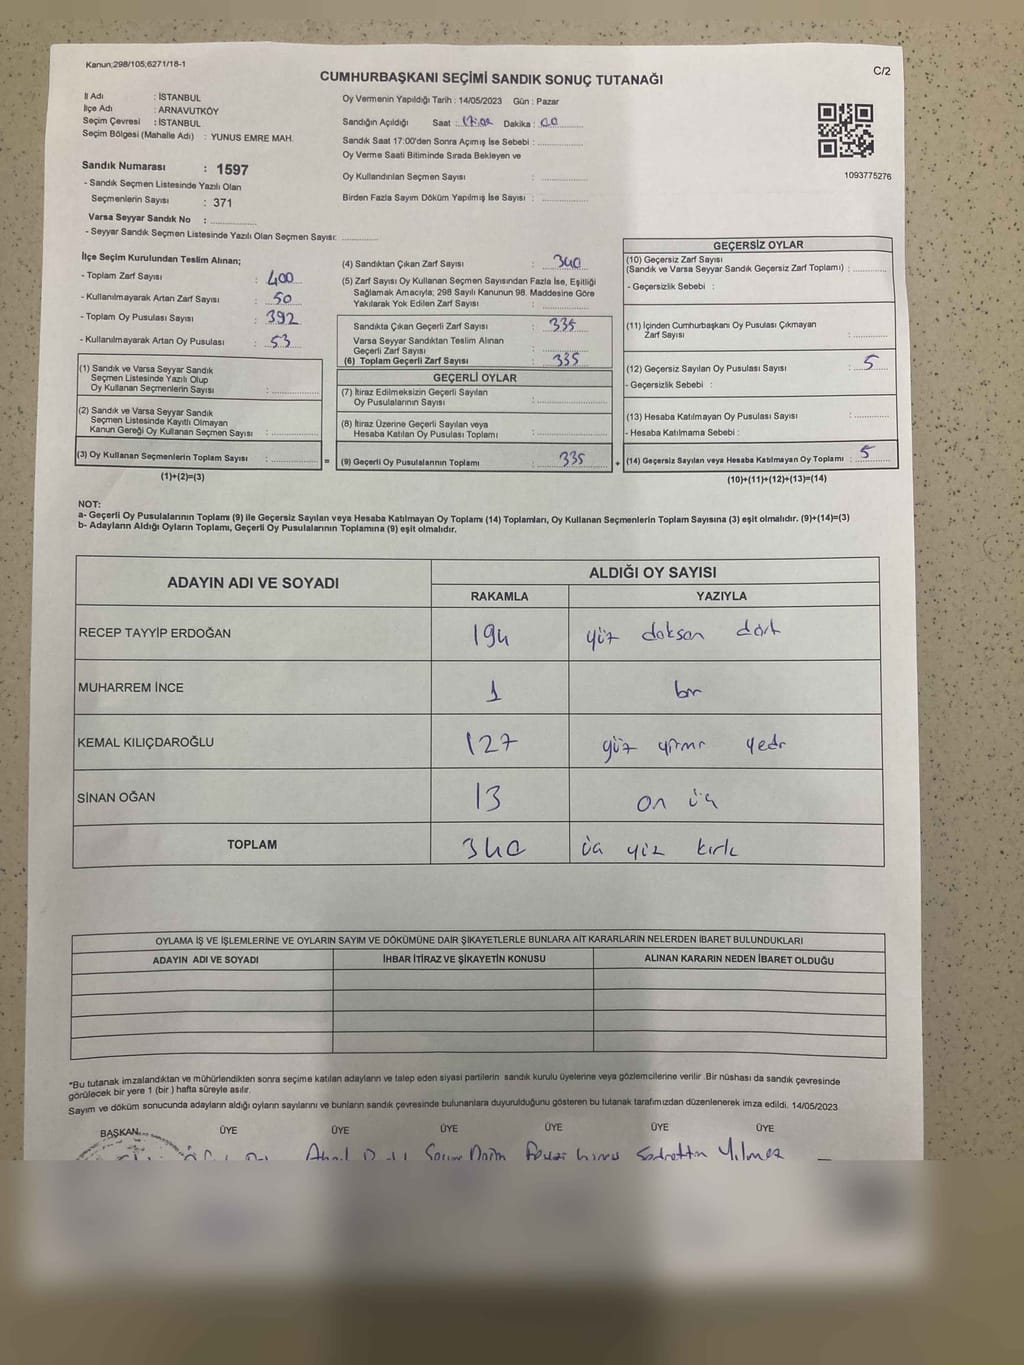 Kanun;298/105,6271/18-1
C/2
CUMHURBAŞKANI SEÇİMİ SANDIK SONUÇ TUTANAĞI
İl Adı : İSTANBUL
İlçe Adı : ARNAVUTKÖY
Seçim Çevresi : İSTANBUL
Seçim Bölgesi (Mahalle Adı) : YUNUS EMRE MAH.
Sandık Numarası : 1597
- Sandık Seçmen Listesinde Yazılı Olan
Seçmenlerin Sayısı : 371
Varsa Seyyar Sandık No :
- Seyyar Sandık Seçmen Listesinde Yazılı Olan Seçmen Sayısı:
Oy Vermenin Yapıldığı Tarih : 14/05/2023 Gün : Pazar
Sandığın Açıldığı Saat : 17.00 Dakika : 00
Sandık Saat 17:00'den Sonra Açımış İse Sebebi :
Oy Verme Saati Bitiminde Sırada Bekleyen ve
Oy Kullandırılan Seçmen Sayısı :
Birden Fazla Sayım Döküm Yapılmış İse Sayısı :
1093775276
İlçe Seçim Kurulundan Teslim Alınan;
- Toplam Zarf Sayısı : 400
- Kullanılmayarak Artan Zarf Sayısı : 50
- Toplam Oy Pusulası Sayısı : 392
- Kullanılmayarak Artan Oy Pusulası : 53
(1) Sandık ve Varsa Seyyar Sandık
Seçmen Listesinde Yazılı Olup
Oy Kullanan Seçmenlerin Sayısı :
(2) Sandık ve Varsa Seyyar Sandık
Seçmen Listesinde Kayıtlı Olmayan
Kanun Gereği Oy Kullanan Seçmen Sayısı :
(3) Oy Kullanan Seçmenlerin Toplam Sayısı :
(1)+(2)=(3)
(4) Sandıktan Çıkan Zarf Sayısı : 340
(5) Zarf Sayısı Oy Kullanan Seçmen Sayısından Fazla İse, Eşitliği
Sağlamak Amacıyla; 298 Sayılı Kanunun 98. Maddesine Göre
Yakılarak Yok Edilen Zarf Sayısı :
Sandıkta Çıkan Geçerli Zarf Sayısı : 335
Varsa Seyyar Sandıktan Teslim Alınan
Geçerli Zarf Sayısı :
(6) Toplam Geçerli Zarf Sayısı : 335
GEÇERLİ OYLAR
(7) İtiraz Edilmeksizin Geçerli Sayılan
Oy Pusulalarının Sayısı :
(8) İtiraz Üzerine Geçerli Sayılan veya
Hesaba Katılan Oy Pusulası Toplamı :
= (9) Geçerli Oy Pusulalarının Toplamı : 335
GEÇERSİZ OYLAR
(10) Geçersiz Zarf Sayısı
(Sandık ve Varsa Seyyar Sandık Geçersiz Zarf Toplamı) :
- Geçersizlik Sebebi :
(11) İçinden Cumhurbaşkanı Oy Pusulası Çıkmayan
Zarf Sayısı :
(12) Geçersiz Sayılan Oy Pusulası Sayısı : 5
- Geçersizlik Sebebi :
(13) Hesaba Katılmayan Oy Pusulası Sayısı :
- Hesaba Katılmama Sebebi :
+ (14) Geçersiz Sayılan veya Hesaba Katılmayan Oy Toplamı : 5
(10)+(11)+(12)+(13)=(14)
NOT:
a- Geçerli Oy Pusulalarının Toplamı (9) ile Geçersiz Sayılan veya Hesaba Katılmayan Oy Toplamı (14) Toplamları, Oy Kullanan Seçmenlerin Toplam Sayısına (3) eşit olmalıdır. (9)+(14)=(3)
b- Adayların Aldığı Oyların Toplamı, Geçerli Oy Pusulalarının Toplamına (9) eşit olmalıdır.
ADAYIN ADI VE SOYADI ALDIĞI OY SAYISI
RAKAMLA YAZIYLA
RECEP TAYYİP ERDOĞAN 194 yüz doksan dört
MUHARREM İNCE 1 bir
KEMAL KILIÇDAROĞLU 127 yüz yirmi yedi
SİNAN OĞAN 13 on üç
TOPLAM 340 üç yüz kırk
OYLAMA İŞ VE İŞLEMLERİNE VE OYLARIN SAYIM VE DÖKÜMÜNE DAİR ŞİKAYETLERLE BUNLARA AİT KARARLARIN NELERDEN İBARET BULUNDUKLARI
ADAYIN ADI VE SOYADI İHBAR İTİRAZ VE ŞİKAYETİN KONUSU ALINAN KARARIN NEDEN İBARET OLDUĞU
*Bu tutanak imzalandıktan ve mühürlendikten sonra seçime katılan adayların ve talep eden siyasi partilerin sandık kurulu üyelerine veya gözlemcilerine verilir .Bir nüshası da sandık çevresinde
görülecek bir yere 1 (bir ) hafta süreyle asılır.
Sayım ve döküm sonucunda adayların aldığı oyların sayılarını ve bunların sandık çevresinde bulunanlara duyurulduğunu gösteren bu tutanak tarafımızdan düzenlenerek imza edildi. 14/05/2023
BAŞKAN ÜYE ÜYE ÜYE ÜYE ÜYE ÜYE
Sadrettin Yılmaz